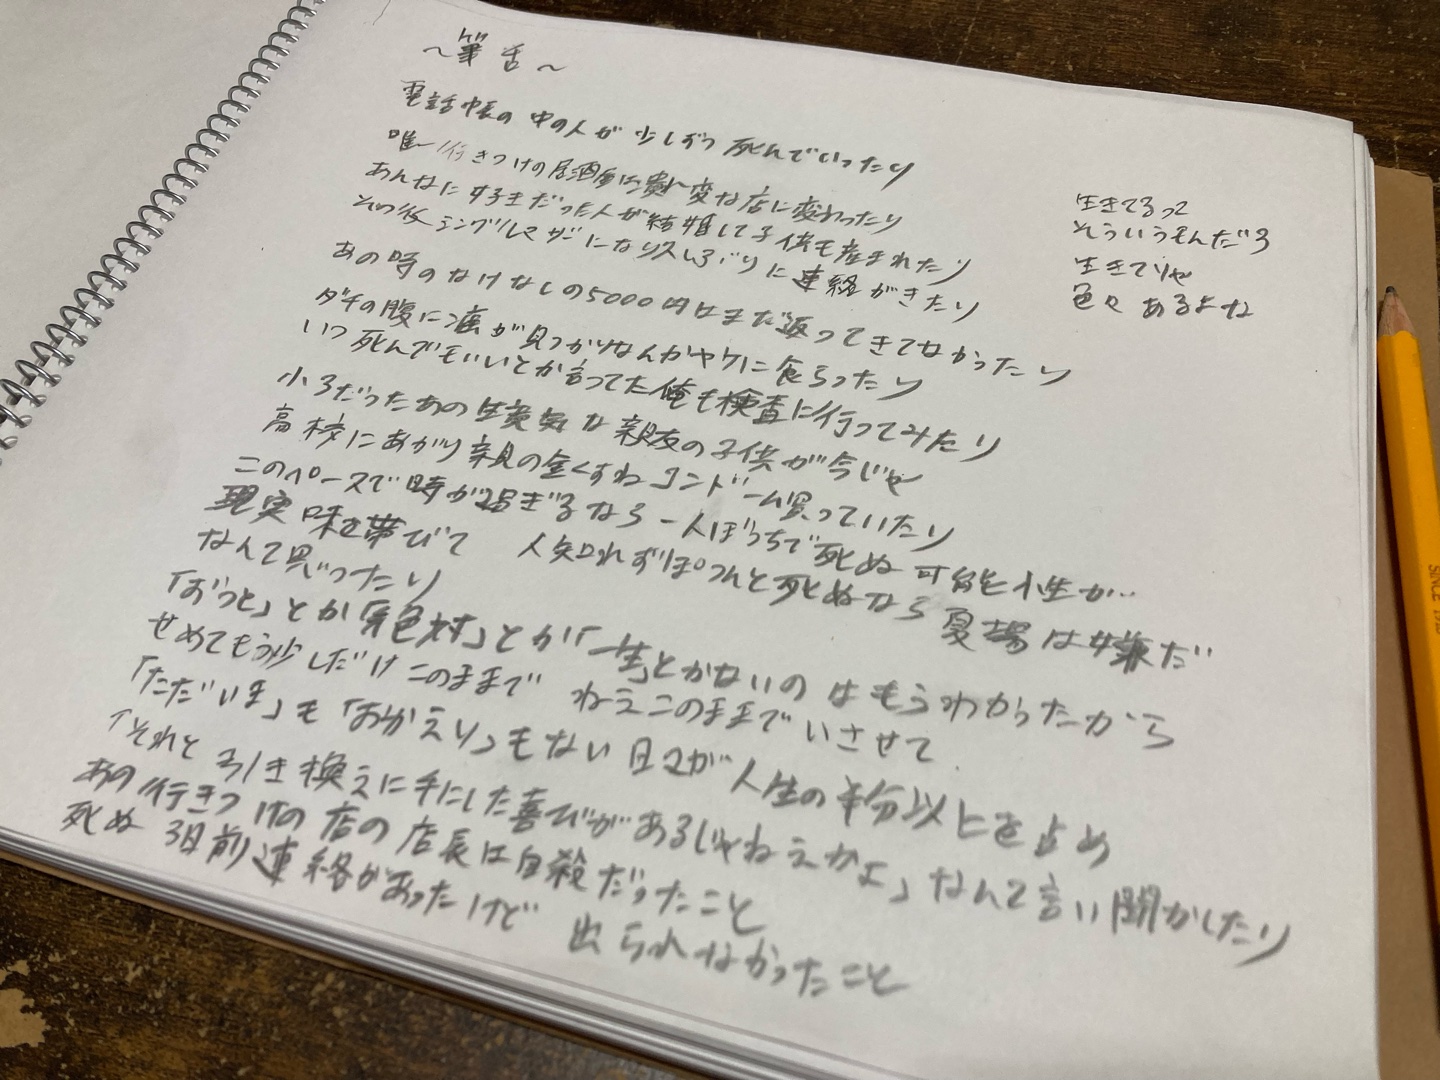 ～筆舌～
電話帳の中の人が少しずつ死んでいったり
唯一行きつけの居酒屋は潰れ変な店に変わったり
あんなに好きだった人が結婚して子供も産まれたり
その後シングルマザーになり久しぶりに連絡がきたり
あの時のなけなしの5000円はまだ返ってきてなかったり
ダチの腹に癌が見つかりなんかヤケに食らったり
いつ死んでもいいとか言ってた俺も検査に行ってみたり
小3だったあの生意気な親友の子供が今じゃ
高校にあがり親の金くすねコンドーム買っていたり
このペースで時が過ぎるなら一人ぼっちで死ぬ可能性が…
現実味を帯びて 人知れずぽつんと死ぬなら夏場は嫌だ
なんて思ったり
「ずっと」とか「絶対」とか「一生」とかないのはもうわかったから
せめてもう少しだけこのままで ねえこのままでいさせて
「ただいま」も「おかえり」もない日々が人生の半分以上を占め
「それと引き換えに手にした喜びがあるじゃねえかよ」なんて言い聞かしたり
あの行きつけの店の店長は自殺だったこと
死ぬ3日前連絡があったけど 出られなかったこと
生きてるって
そういうもんだろ
生きてりゃ
色々あるよね
SINCE